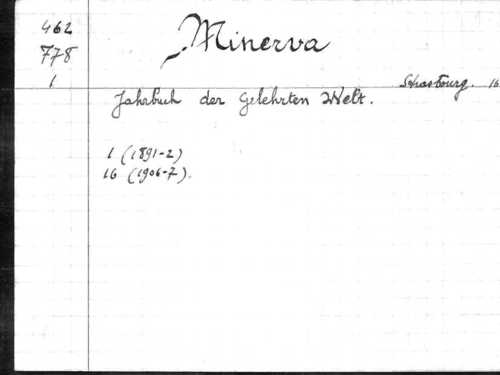 462
778
1
Minerva
Strasbourg. 16
Jahrbuch der Gelehrten Welt.
1 (1891-2)
16 (1906-7).